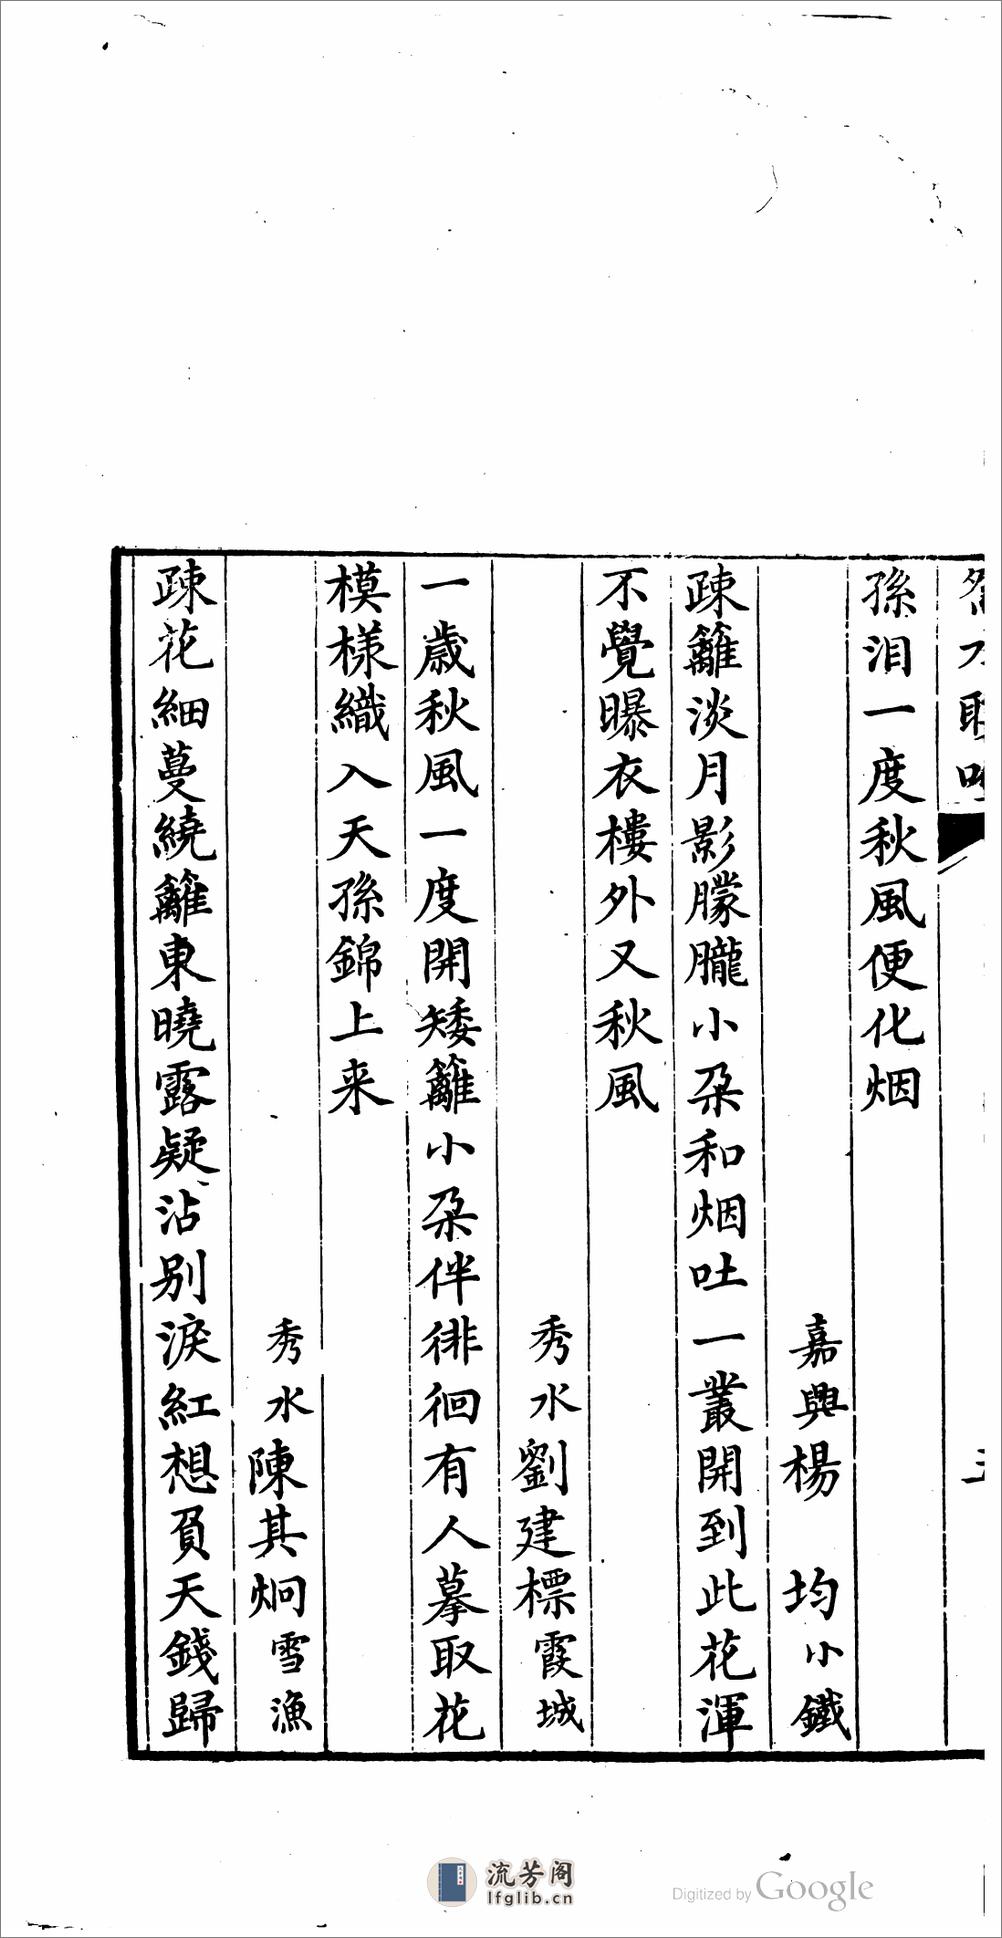 孫泪一度秋風便化烟
嘉興楊　均小鐵
疎籬淡月影朦朧小朶和烟吐一叢開到此花渾
不覺曝衣樓外又秋風
秀水劉建標霞城
一歲秋風一度開矮籬小朶伴徘徊有人摹取花
模樣織入天孫錦上来
秀水陳其炯雪漁
疎花細蔓繞籬東曉露凝沾别淚紅想負天錢歸
流芳阁
lfglib.cn
Digitized by Google